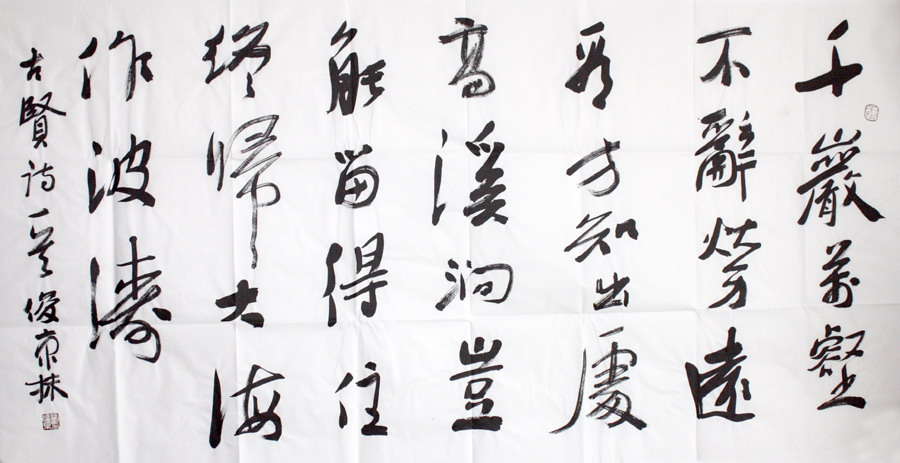 千巖萬壑
不辭勞遠
看方知出處
高溪澗豈
能留得住
終歸大海
作波濤
古賢詩一首俊